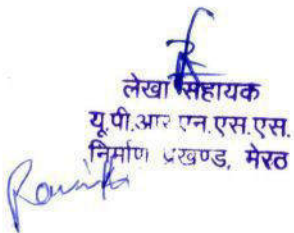 लेखा सहायक
यू.पी.आर एन.एस.एस.
निर्माण प्रखण्ड, मेरठ